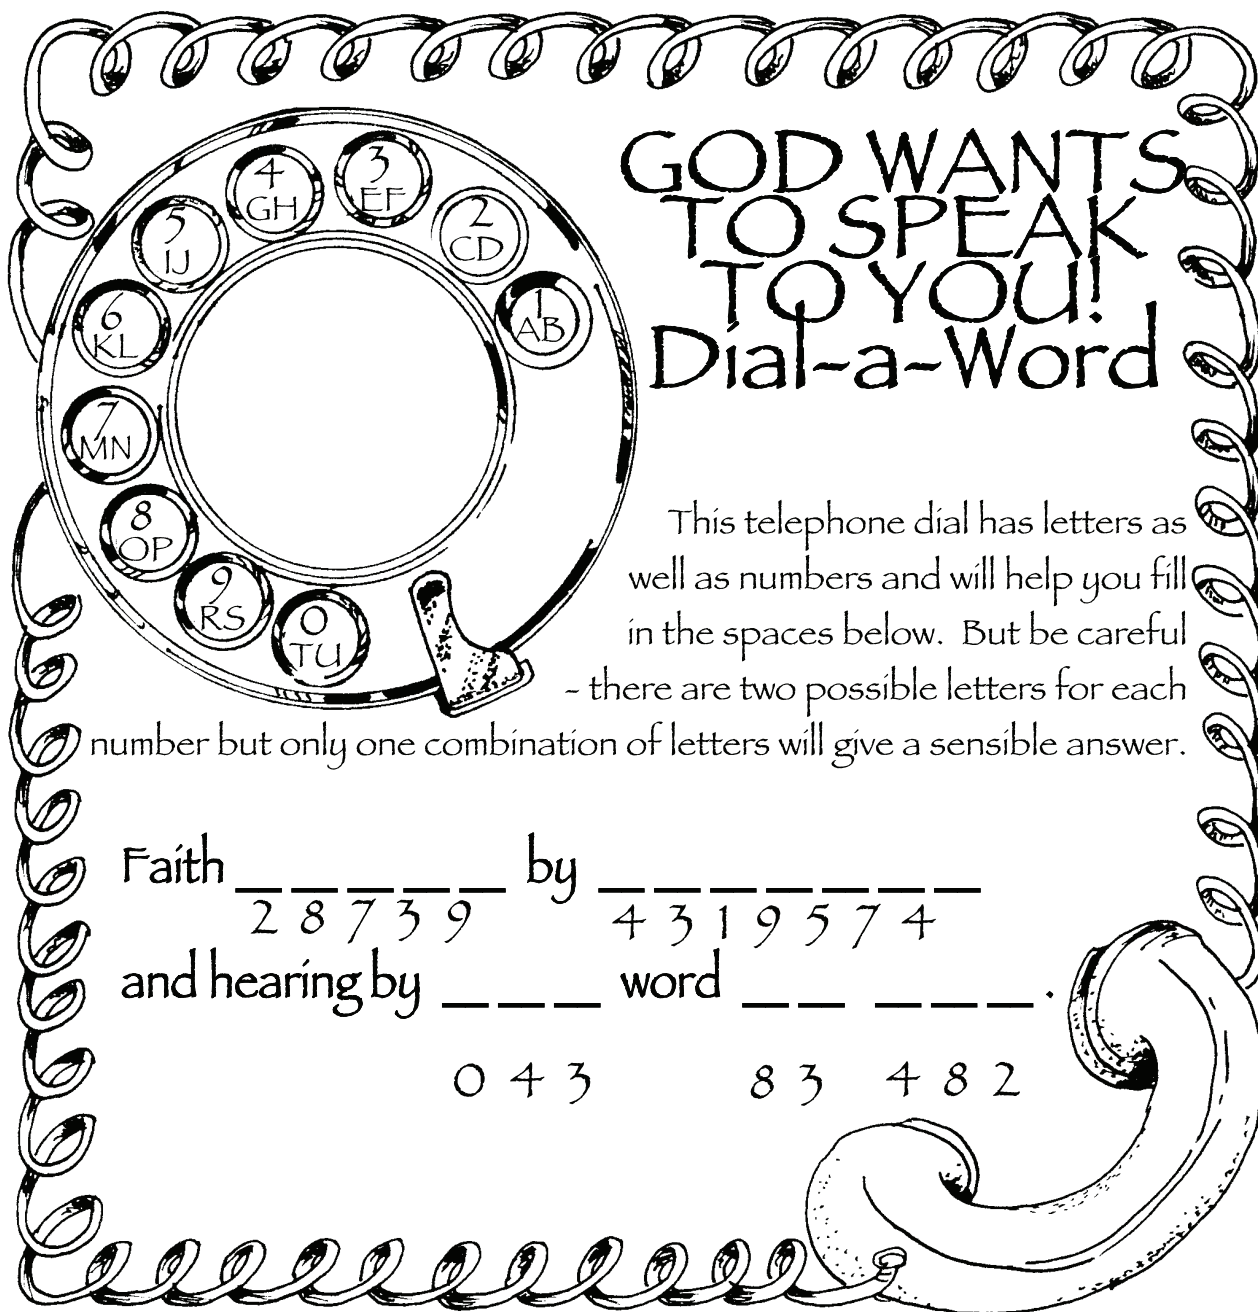 GOD WANTS
TO SPEAK
TO YOU!
Dial-a-Word
1
AB
2
CD
3
EF
4
GH
5
IJ
6
KL
7
MN
8
OP
9
RS
0
TU
This telephone dial has letters as
well as numbers and will help you fill
in the spaces below. But be careful
- there are two possible letters for each
number but only one combination of letters will give a sensible answer.
Faith _ _ _ _ _ by _ _ _ _ _ _ _
2 8 7 3 9 4 3 1 9 5 7 4
and hearing by _ _ _ word _ _ _ _ _ .
0 4 3 8 3 4 8 2